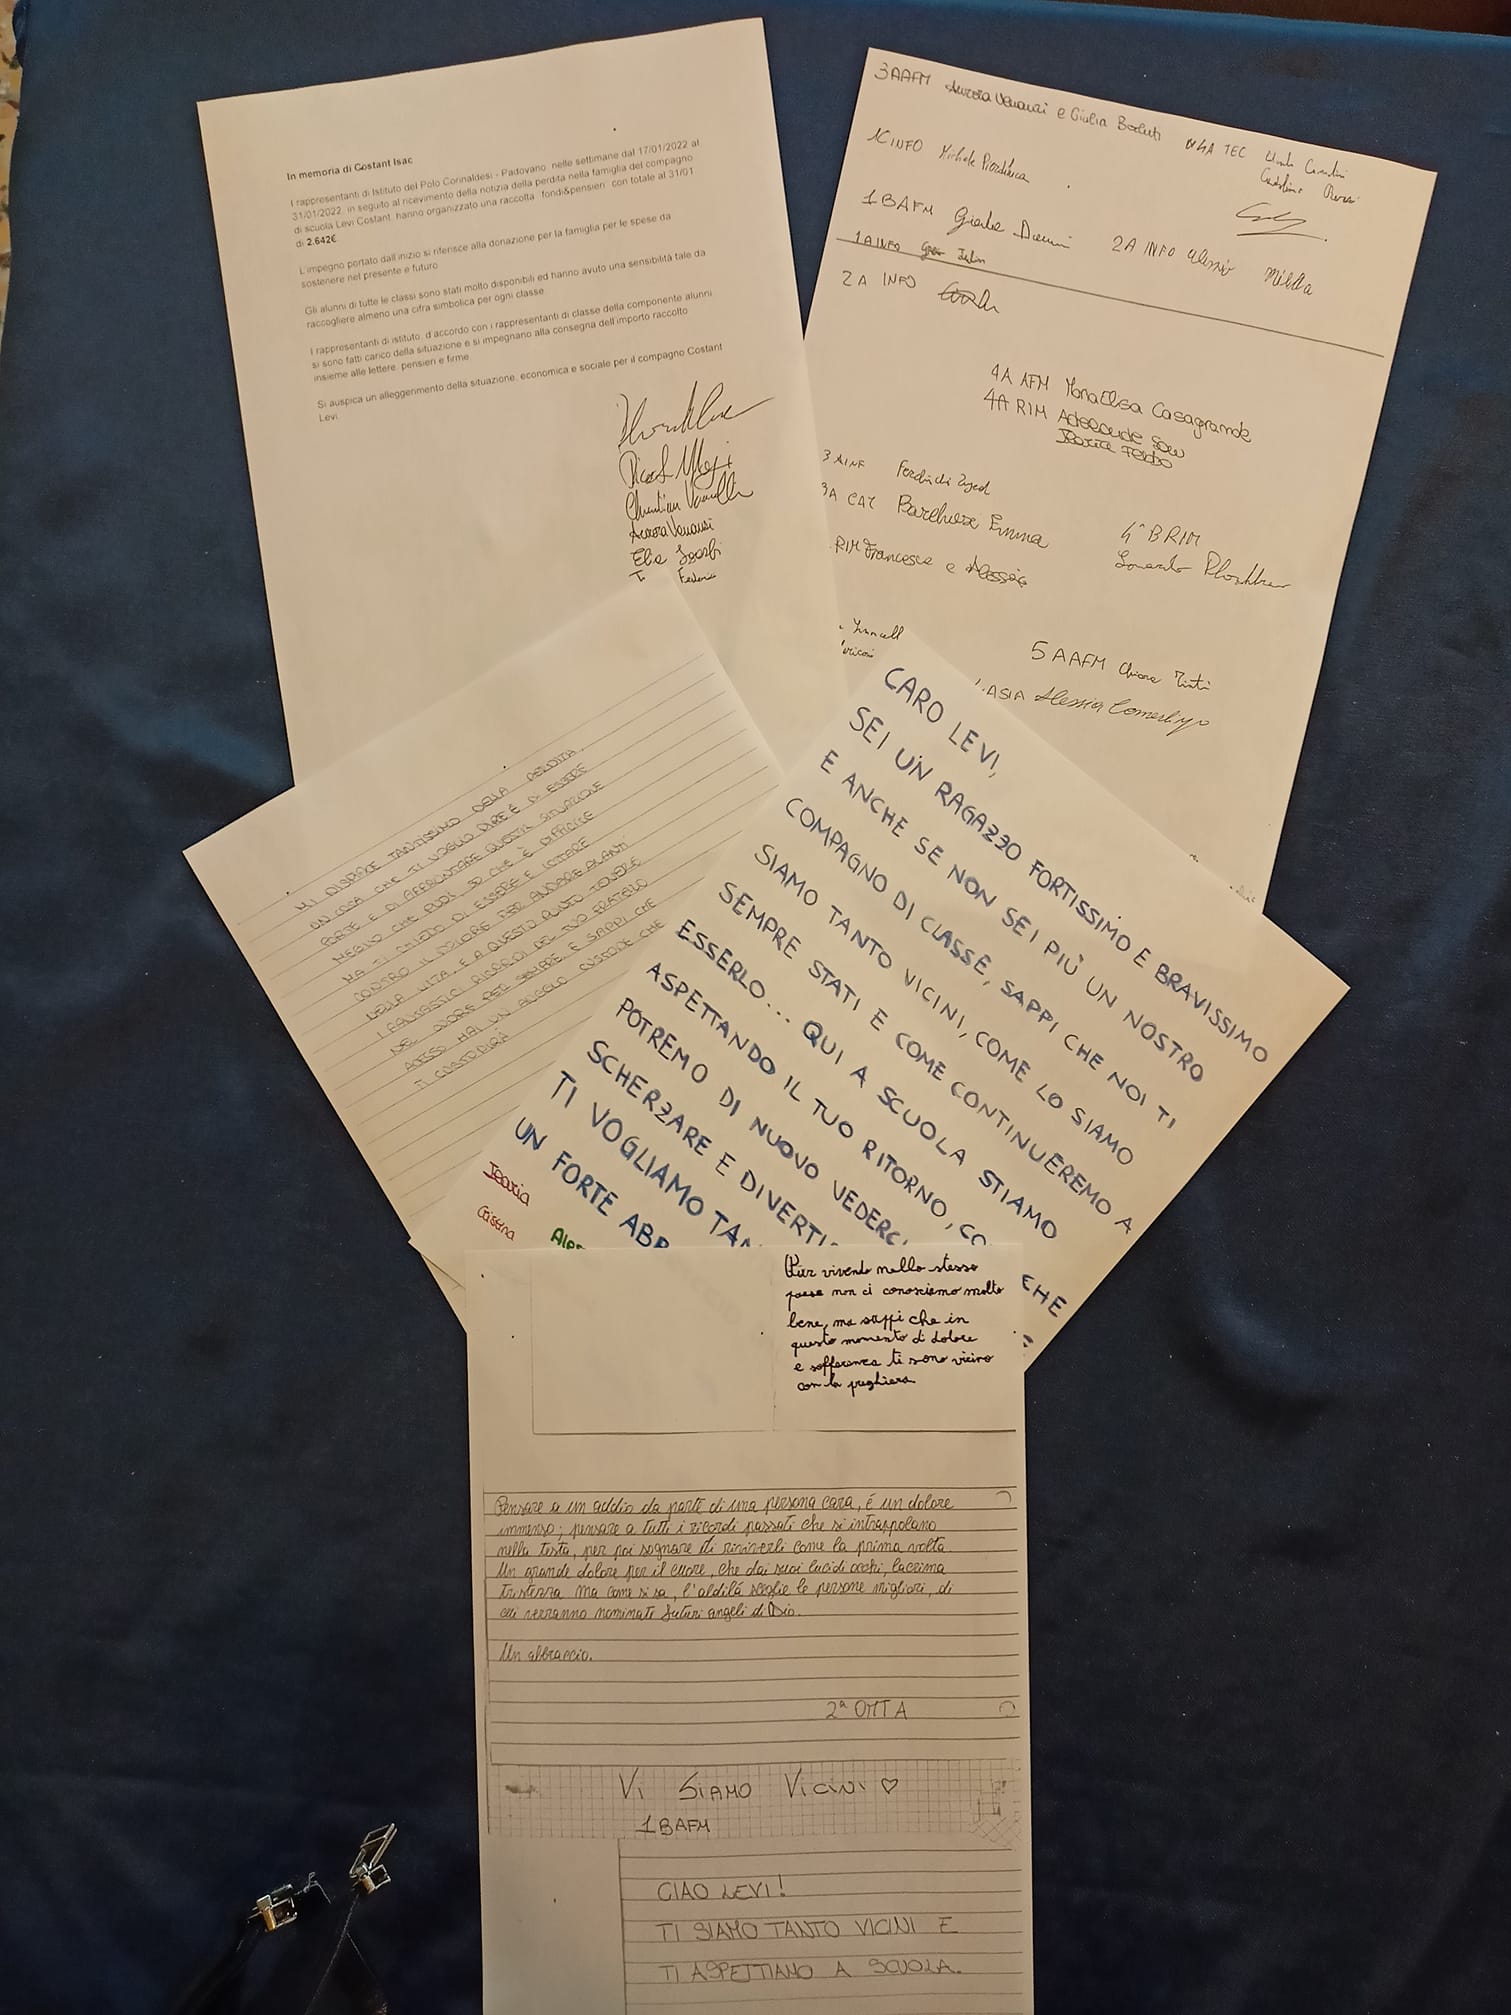 In memoria di Costant Isac
I rappresentanti di Istituto del Polo Corinaldesi - Padovano, nelle settimane dal 17/01/2022 al
31/01/2022, in seguito al ricevimento della notizia della perdita nella famiglia del compagno
di scuola Levi Costant, hanno organizzato una raccolta fondi&pensieri con totale al 31/01
di 2.642€
L'impegno portato dall'inizio si riferisce alla donazione per la famiglia per le spese da
sostenere nel presente e futuro
Gli alunni di tutte le classi sono stati molto disponibili ed hanno avuto una sensibilità tale da
raccogliere almeno una cifra simbolica per ogni classe
I rappresentanti di istituto, d'accordo con i rappresentanti di classe della componente alunni
si sono fatti carico della situazione e si impegnano alla consegna dell'importo raccolto
insieme alle lettere, pensieri e firme
Si auspica un alleggerimento della situazione, economica e sociale per il compagno Costant
Levi.
Aurora Venanzi
Elia
Federico
3AAFM Aurora Venanzi e Giulia
4A TEC
1C INFO Michele
1BAFM Giada
2A INFO Alessio
1A INFO
2A INFO
4A AFM MonaElisa Casagrande
4A RIM
3 AINF
3A CAT Emma
4^BRIM
Leonardo
RIM Francesca e Alessia
5AAFM Chiara Tinti
ASIA Alessia
MI DISPIACE TANTISSIMO DELLA PERDITA.
UN COSA CHE TI VOGLIO DIRE È DI ESSERE
FORTE E DI AFFRONTARE QUESTA SITUAZIONE
MEGLIO CHE PUOI SO CHE È DIFFICILE
MA TI CHIEDO DI ESSERE E LOTTARE
CONTRO IL DOLORE PER ANDARE AVANTI
NELLA VITA. E A QUESTO PUNTO TENERE
I FANTASTICI RICORDI DEL TUO FRATELLO
NEL CUORE PER SEMPRE E SAPPI CHE
ADESSO HAI UN ANGELO CUSTODE CHE
TI CUSTODIRÀ
CARO LEVI,
SEI UN RAGAZZO FORTISSIMO E BRAVISSIMO
E ANCHE SE NON SEI PIÙ UN NOSTRO
COMPAGNO DI CLASSE, SAPPI CHE NOI TI
SIAMO TANTO VICINI, COME LO SIAMO
SEMPRE STATI E COME CONTINUEREMO A
ESSERLO... QUI A SCUOLA STIAMO
ASPETTANDO IL TUO RITORNO, CO CHE
POTREMO DI NUOVO VEDERCI
SCHERZARE E DIVERTI
TI VOGLIAMO TAN
UN FORTE ABB
Ilaria
Cristina
Ales
Pur vivendo nello stesso
paese non ci conosciamo molto
bene, ma sappi che in
questo momento di dolore
e sofferenza ti sono vicino
con la preghiera
Pensare a un addio da parte di una persona cara, é un dolore
immenso; pensare a tutti i ricordi passati che si intrappolano
nella testa, per poi sognare di riviverli come la prima volta.
Un grande dolore per il cuore, che dai suoi lucidi occhi, lacrima
tristezza. Ma come si sa, l'aldilá sceglie le persone migliori, di
cui verranno nominati futuri angeli di Dio.
Un abbraccio.
2ª OMTA
Vi Siamo Vicini ♡
1BAFM
CIAO LEVI!
TI SIAMO TANTO VICINI E
TI ASPETTIAMO A SCUOLA.